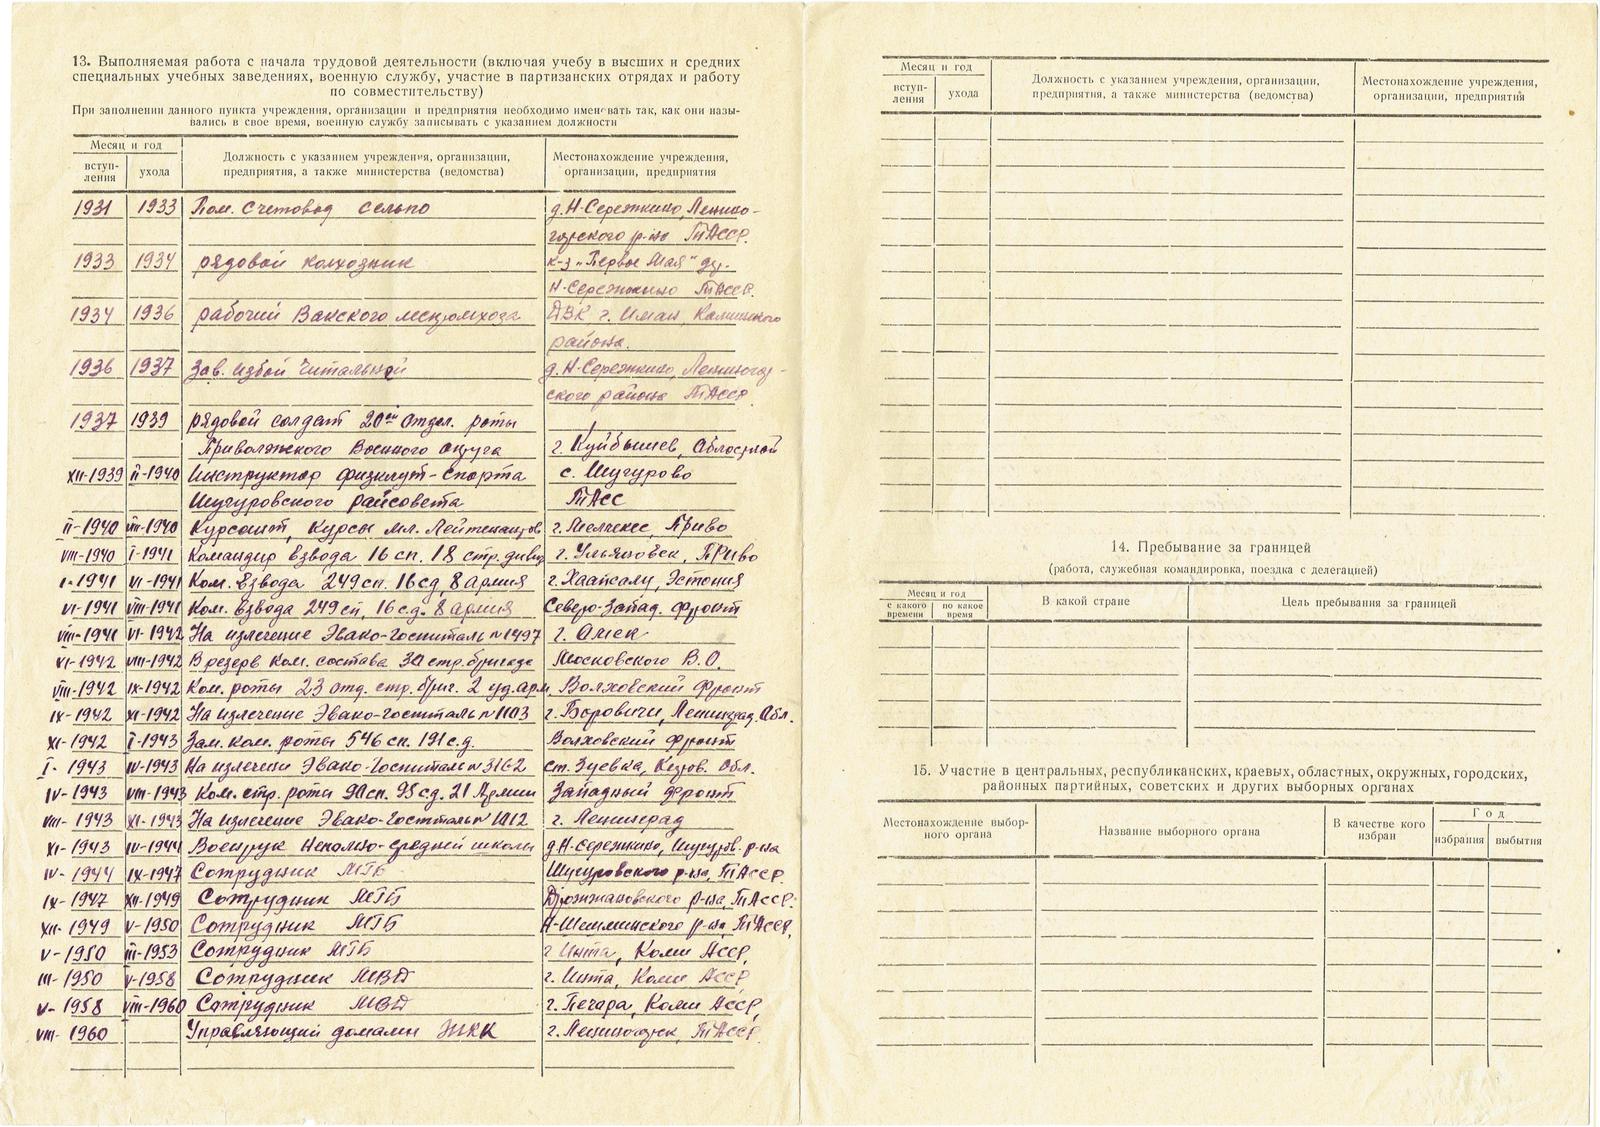 13. Выполняемая работа с начала трудовой деятельности (включая учебу в высших и средних
специальных учебных заведениях, военную службу, участие в партизанских отрядах и работу
по совместительству)
При заполнении данного пункта учреждения, организации и предприятия необходимо именовать так, как они назы-
вались в свое время, военную службу записывать с указанием должности
Месяц и год
вступ-
ления
ухода
Должность с указанием учреждения, организации,
предприятия, а также министерства (ведомства)
Местонахождение учреждения,
организации, предприятия
1931 1933 Пом. Счетовод сельпо д. Н-Сережкино, Ленино-
горского р-на ТАССР.
1933 1934 рядовой колхозник к-з "Первое Мая"
Н-Сережкино ТАССР.
1934 1936 рабочий Вакского леспромхоза ДВК г. Иман, Калининского
района.
1936 1937 Зав. избой читальней д. Н-Сережкино, Лениногор-
ского района ТАССР
1937 1939 рядовой солдат 20ой отдел. роты
Приволжского Военного округа г. Куйбышев, Областной
XII-1939 II-1940 Инструктор физкульт-спорта с. Шугурово
Шугуровского райсовета ТАСС
II-1940 VIII-1940 Курсант, Курсы мл. Лейтенантов г. Мелекес, Приво
VIII-1940 I-1941 Командир взвода 16 сп. 18 стр. дивиз г. Ульяновск, ПРиво
I-1941 VI-1941 Ком. Взвода 249 сп. 16 сд, 8 армия г. Хаапсалу, Эстония
VI-1941 VIII-1941 Ком. взвода 249 сп, 16 с.д. 8 армия Северо-Запад. фронт
VIII-1941 VI-1942 На излечение Эвако-Госпиталь №1497 г. Омск
VI-1942 VIII-1942 В резерв Ком. состава 30 стр. бригада Московского В.О.
VIII-1942 IX-1942 Ком. роты 23 отд. стр. бриг. 2 уд. арм, Волховский фронт
IX-1942 XI-1942 На излечение Эвако-Госпиталь №1103 г. Боровичи, Ленинград. Обл.
XI-1942 I-1943 Зам. ком. роты 546 сп. 191 с.д. Волховский фронт
I-1943 IV-1943 На излечении Эвако-Госпиталь №3162 ст. Зуевка, Киров. Обл.
IV-1943 VIII-1943 Ком. стр. роты 90 сп. 95 сд. 21 Армии Западный фронт
VIII-1943 XI-1943 На излечение Эвако-Госпиталь № 1012 г. Ленинград
XI-1943 IV-1944 Военрук Неполно-средней школы д. Н-Сережкино, Шугуров. р-на
IV-1944 IX-1947 Сотрудник МГБ Шугуровского р-на, ТАССР.
IX-1947 XII-1949 Сотрудник МГБ Дрожжановского р-на, ТАССР.
XII-1949 V-1950 Сотрудник МГБ Н-Шешминского р-на, ТАССР,
V-1950 III-1953 Сотрудник МГБ г. Инта, Коми АССР,
III-1950 V-1958 Сотрудник МВД г. Инта, Коми АССР,
V-1958 VIII-1960 Сотрудник МВД г. Печора, Коми АССР,
VIII-1960 Управляющий домами ЖКК г. Лениногорск, ТАССР.
Месяц и год
вступ-
ления
ухода
Должность с указанием учреждения, организации,
предприятия, а также министерства (ведомства)
Местонахождение учреждения,
организации, предприятия
14. Пребывание за границей
(работа, служебная командировка, поездка с делегацией)
Месяц и год
с какого
времени
по какое
время
В какой стране
Цель пребывания за границей
15. Участие в центральных, республиканских, краевых, областных, окружных, городских,
районных партийных, советских и других выборных органах
Местонахождение выбор-
ного органа
Название выборного органа
В качестве кого
избран
Год
избрания
выбытия